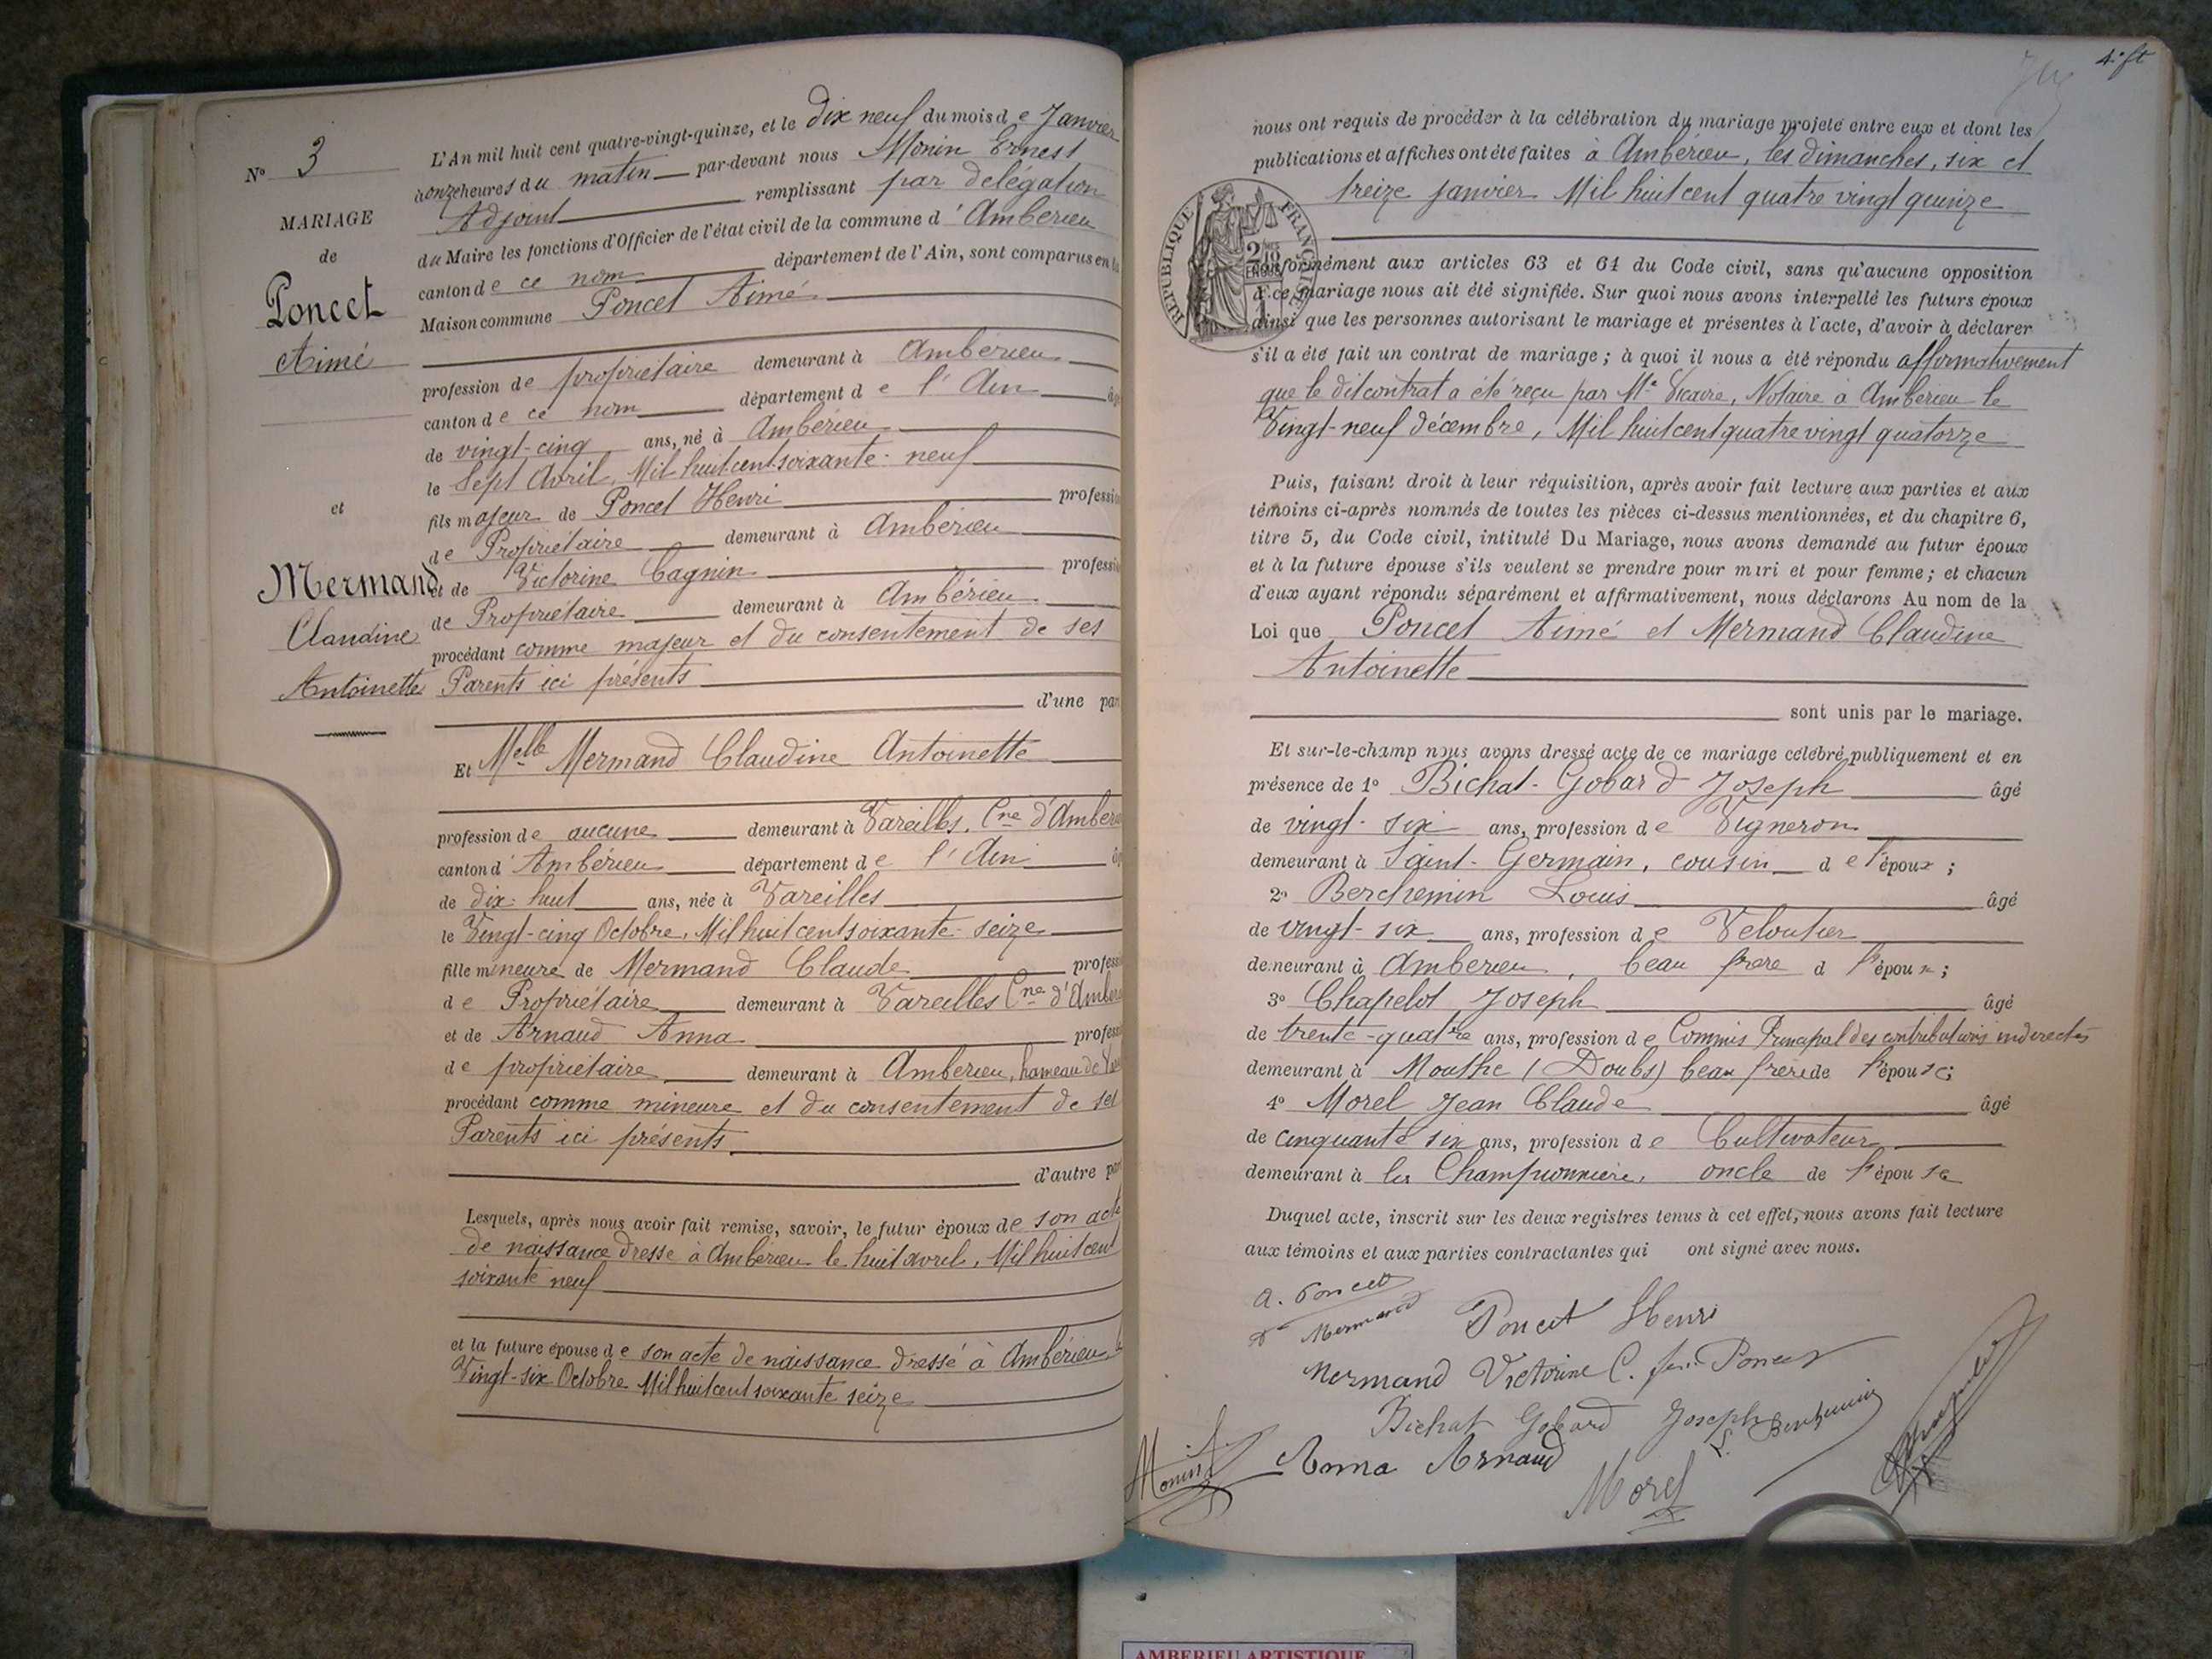 N° 3
MARIAGE
de
Poncet
Aimé
et
Mermand
Claudine
Antoinette
L'An mil huit cent quatre-vingt-quinze, et le dix neuf du mois de Janvier
à onze heures du matin par-devant nous Monin Ernest
Adjoint remplissant par délégation
du Maire les fonctions d'Officier de l'état civil de la commune d'Ambérieu
canton de ce nom département de l'Ain, sont comparus en la
Maison commune Poncet Aimé
profession de propriétaire demeurant à Ambérieu
canton de ce nom département de l'Ain âgé
de vingt-cinq ans, né à Ambérieu
le Sept Avril, Mil huit cent soixante-neuf
fils majeur de Poncet Henri profession
de Propriétaire demeurant à Ambérieu
et de Victorine Cagnin profession
de Propriétaire demeurant à Ambérieu
procédant comme majeur et du consentement de ses
Parents ici présents
d'une part
Et Melle Mermand Claudine Antoinette
profession de aucune demeurant à Vareilles, Cne d'Ambérieu
canton d'Ambérieu département de l'Ain âgé
de dix-huit ans, née à Vareilles
le Vingt-cinq Octobre, Mil huit cent soixante-seize
fille mineure de Mermand Claude profession
de Propriétaire demeurant à Vareilles Cne d'Ambérieu
et de Arnaud Anna profession
de propriétaire demeurant à Ambérieu, hameau de
procédant comme mineure et du consentement de ses
Parents ici présents
d'autre part
Lesquels, après nous avoir fait remise, savoir, le futur époux de son acte
de naissance dressé à Ambérieu le huit avril, Mil huit cent
soixante neuf
et la future épouse de son acte de naissance dressé à Ambérieu le
Vingt-six Octobre Mil huit cent soixante seize
4e ft
nous ont requis de procéder à la célébration du mariage projeté entre eux et dont les
publications et affiches ont été faites à Ambérieu, les dimanches, six et
treize janvier Mil huit cent quatre vingt quinze
REPUBLIQUE FRANCAISE
conformément aux articles 63 et 64 du Code civil, sans qu'aucune opposition
à ce mariage nous ait été signifiée. Sur quoi nous avons interpellé les futurs époux
ainsi que les personnes autorisant le mariage et présentes à l'acte, d'avoir à déclarer
s'il a été fait un contrat de mariage ; à quoi il nous a été répondu affirmativement
que le dit contrat a été reçu par Me Vicaire, Notaire à Ambérieu le
Vingt-neuf décembre, Mil huit cent quatre vingt quatorze
Puis, faisant droit à leur réquisition, après avoir fait lecture aux parties et aux
témoins ci-après nommés de toutes les pièces ci-dessus mentionnées, et du chapitre 6,
titre 5, du Code civil, intitulé Du Mariage, nous avons demandé au futur époux
et à la future épouse s'ils veulent se prendre pour mari et pour femme ; et chacun
d'eux ayant répondu séparément et affirmativement, nous déclarons Au nom de la
Loi que Poncet Aimé et Mermand Claudine
Antoinette
sont unis par le mariage.
Et sur-le-champ nous avons dressé acte de ce mariage célébré publiquement et en
présence de 1° Bichat-Gobard Joseph âgé
de vingt-six ans, profession de Vigneron
demeurant à Saint-Germain, cousin de l'époux ;
2° Berchemin Louis âgé
de vingt-six ans, profession de Veloutier
demeurant à Ambérieu, beau frère d l'époux ;
3° Chapelot Joseph âgé
de trente-quatre ans, profession de Commis Principal des contributions indirectes
demeurant à Mouthe (Doubs) beau frère de l'épouse ;
4° Morel Jean Claude âgé
de cinquante six ans, profession de Cultivateur
demeurant à la Championnière, oncle de l'épouse
Duquel acte, inscrit sur les deux registres tenus à cet effet, nous avons fait lecture
aux témoins et aux parties contractantes qui ont signé avec nous.
A. Poncet
Mermand
Poncet Henri
Mermand Victorine C. fem Poncet
Bichat Gobard Joseph L. Berchemin
Monin Anna Arnaud
Morel
AMBERIEU ARTISTIQUE